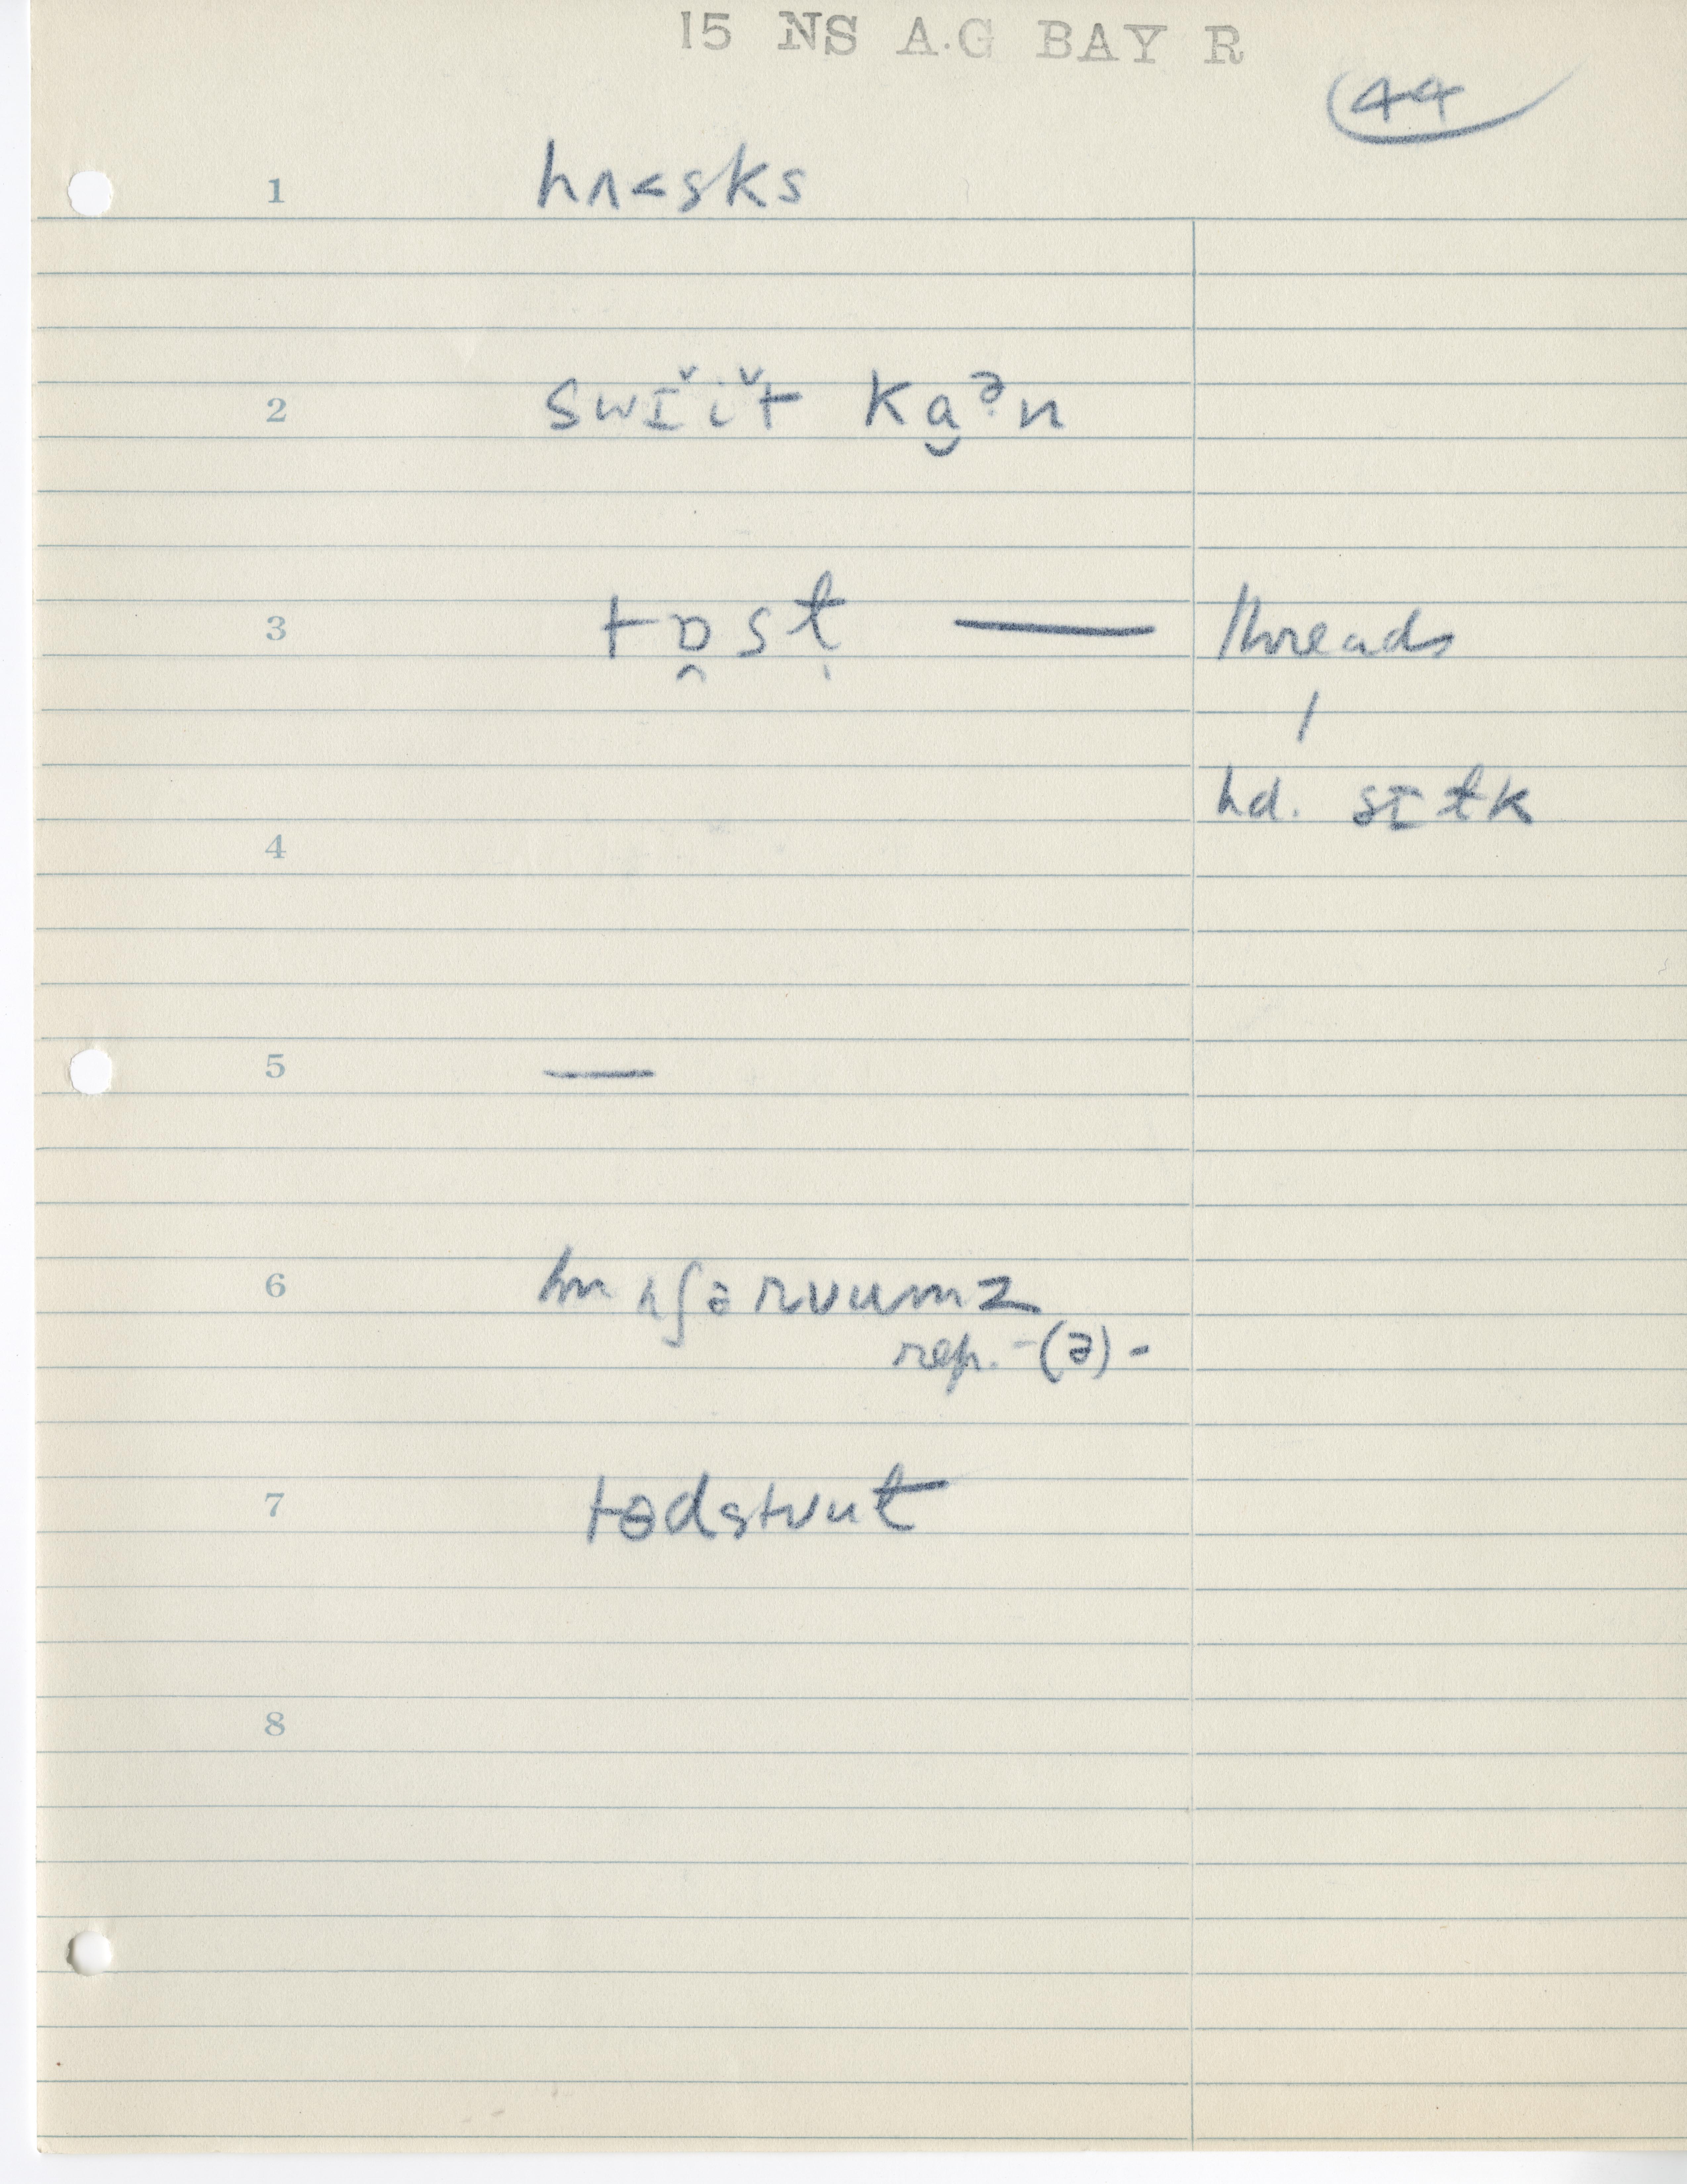 15 NS A.G BAY R
44
1 hʌ<sks
2 swɪ̆ĭt ka̯ᵊn
3 tɒ̯sṭ — threads
hd. sɪɫk
4
5 —
6 mʌʃərvumz
rep. -(ə)-
7 tɵdstuɫ
8